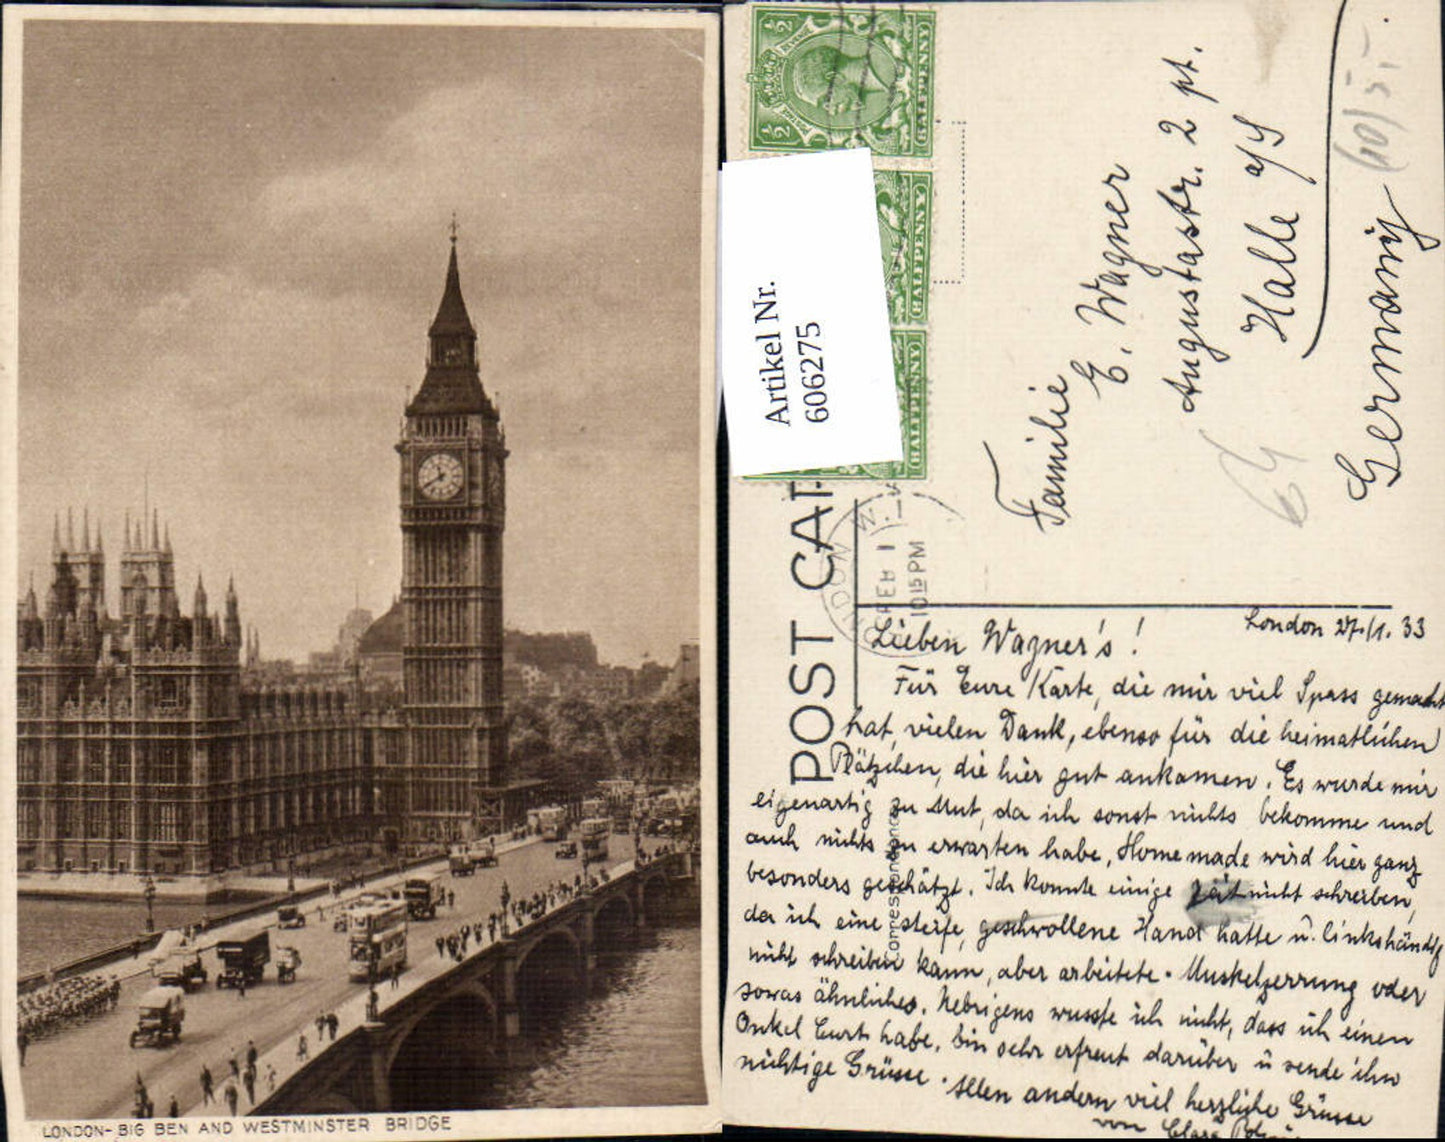 LONDON- BIG BEN AND WESTMINSTER BRIDGE
½ ½
POSTAGE REVENUE
HALFPENNY
HALFPENNY
HALFPENNY
Artikel Nr.
606275
POST CAR
LONDON
FEB 1
10 15 PM
Correspondence
Familie
E. Wagner
Augustastr. 2 pt.
Halle a/S
Germany
London 27./1. 33
Lieben Wagner's!
Für Eure Karte, die mir viel Spass gemacht
hat, vielen Dank, ebenso für die heimatlichen
Plätzchen, die hier gut ankamen. Es wurde mir
eigenartig zu Mut, da ich sonst nichts bekomme und
auch nichts zu erwarten habe, Home made wird hier ganz
besonders geschätzt. Ich konnte einige Zeit nicht schreiben,
da ich eine steife, geschwollene Hand hatte u. linkshändig
nicht schreiben kann, aber arbeitete. Muskelzerrung oder
sowas ähnliches. Uebrigens wusste ich nicht, dass ich einen
Onkel Curt habe, bin sehr erfreut darüber u sende ihm
nichtige Grüsse. Allen andern viel herzliche Grüsse
von Clara